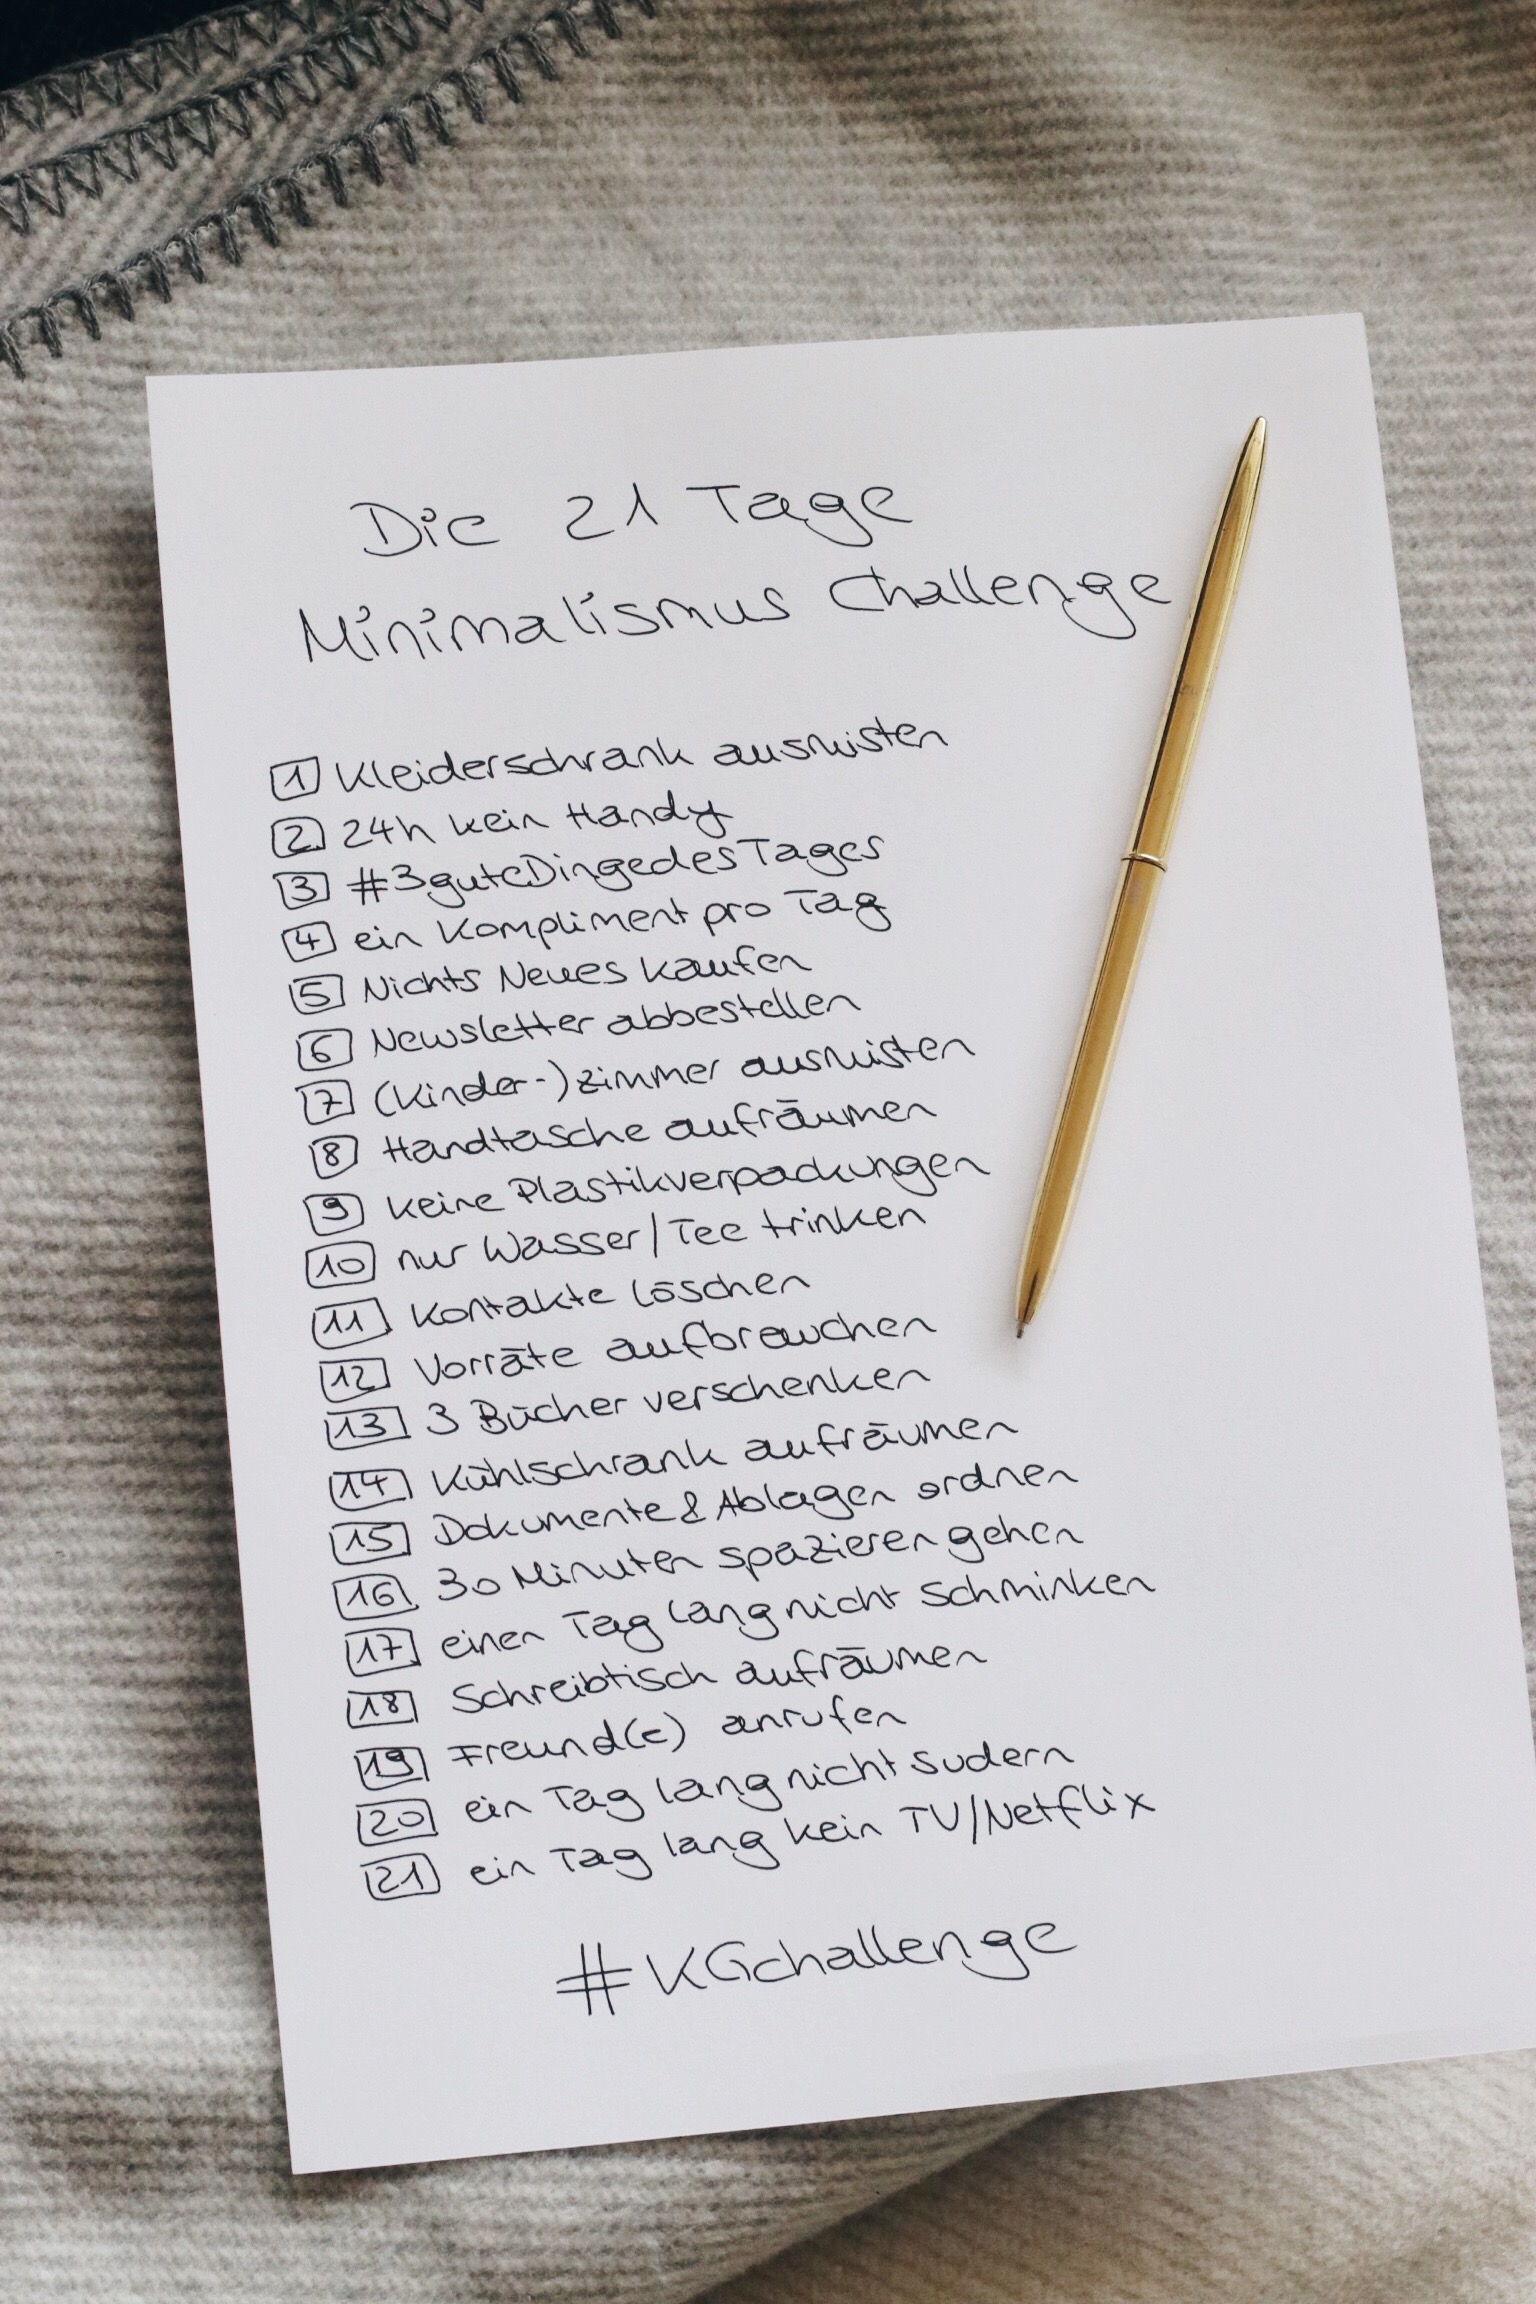 Die 21 Tage
Minimalismus Challenge
1 Kleiderschrank ausmisten
2 24h kein Handy
3 #3guteDingedesTages
4 ein Kompliment pro Tag
5 Nichts Neues kaufen
6 Newsletter abbestellen
7 (Kinder-)zimmer ausmisten
8 Handtasche aufräumen
9 keine Plastikverpackungen
10 nur Wasser/Tee trinken
11 Kontakte löschen
12 Vorräte aufbrauchen
13 3 Bücher verschenken
14 Kühlschrank aufräumen
15 Dokumente & Ablagen ordnen
16 30 Minuten spazieren gehen
17 einen Tag lang nicht schminken
18 Schreibtisch aufräumen
19 Freund(e) anrufen
20 ein Tag lang nicht sudern
21 ein Tag lang kein TV/Netflix
#KGchallenge